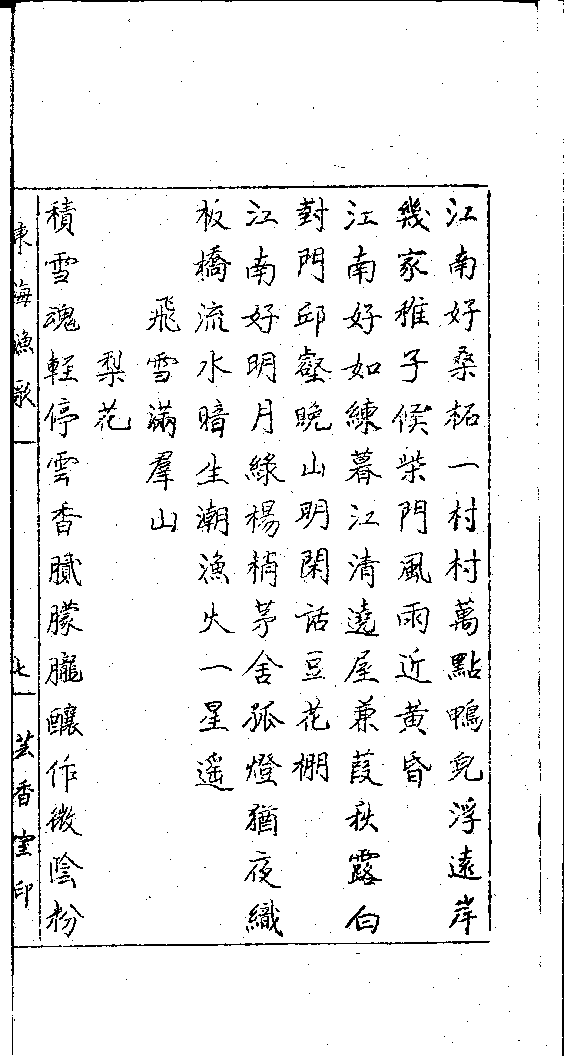 江南好桑柘一村村萬點鴨兒浮遠岸
幾家稚子候柴門風雨近黃昏
江南好如練暮江清遶屋兼葭秋露白
對門邱壑晚山明閑話豆花棚
江南好明月綠楊梢茅舍孤燈猶夜織
板橋流水暗生潮漁火一星遥
飛雪滿羣山
梨花
積雪魂輕停雲香膩朦朧釀作微陰粉
東海漁歌
七
芸香室印